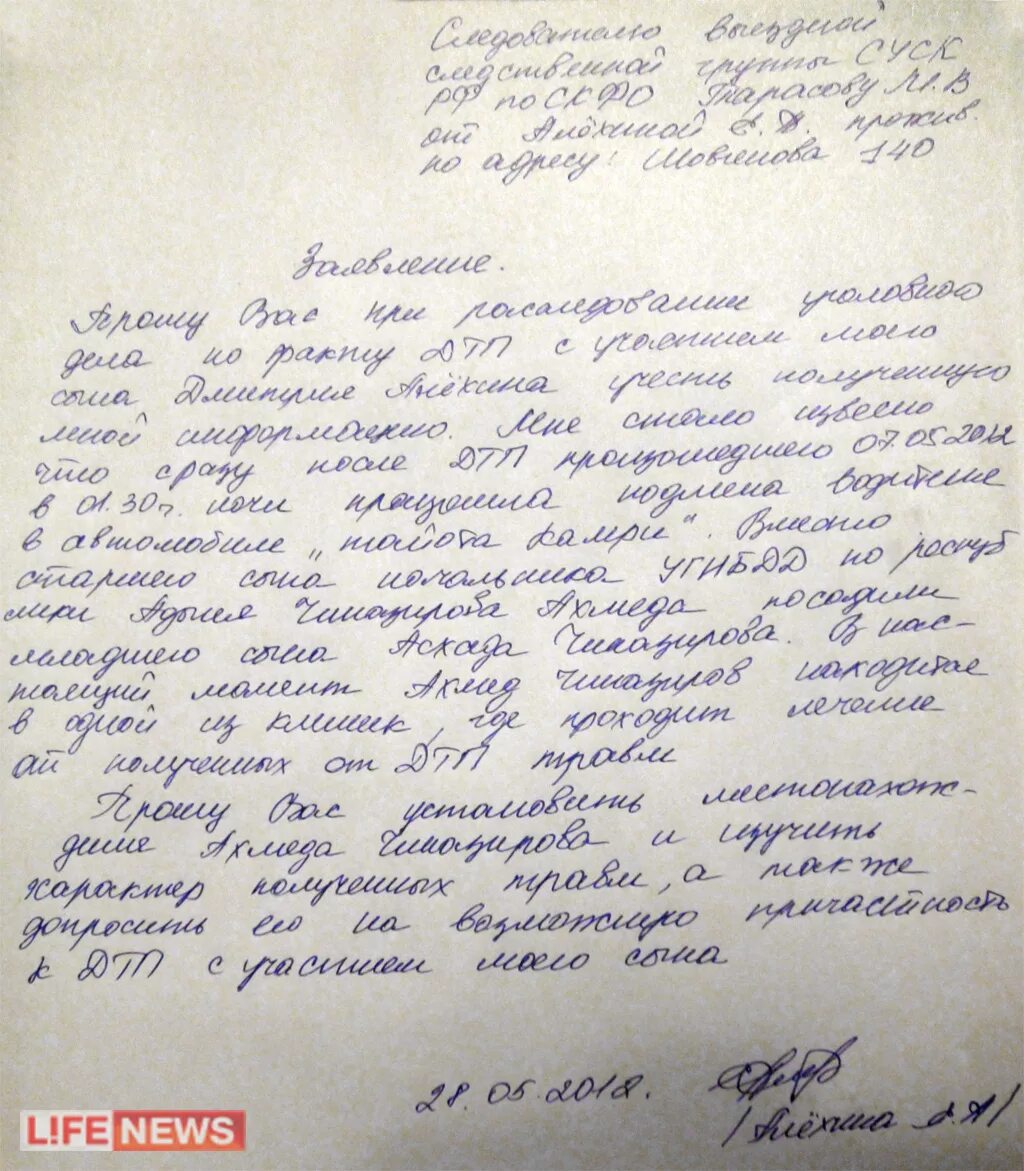 Следователю выездной
следственной группы СУСК
РФ по СКФО Тарасову М.В
от Алёхиной прожив.
по адресу: Шовгенова 140
Заявление.
Прошу Вас при расследовании уголовного
дела по факту ДТП с участием моего
сына Дмитрия Алёхина учесть полученную
мной информацию. Мне стало извесно
что сразу после ДТП произошедшего 07.05.2012
в 01.30г. ночи произошла подмена водителя
в автомобиле „тойота камри". Вместо
старшего сына начальника УГИБДД по респуб
лики Адыгея Чиназирова Ахмеда посадили
младшего сына Асхада Чиназирова. В нас-
тоящий момент Ахмед Чиназиров находится
в одной из клиник, где проходит лечение
от полученных от ДТП травм
Прошу Вас установить местонахож-
дение Ахмеда Чиназирова и изучить
характер полученных травм, а также
допросить его на возможную причастность
к ДТП с участием моего сына
28.05.2012.
/Алёхина А/
L!FE NEWS